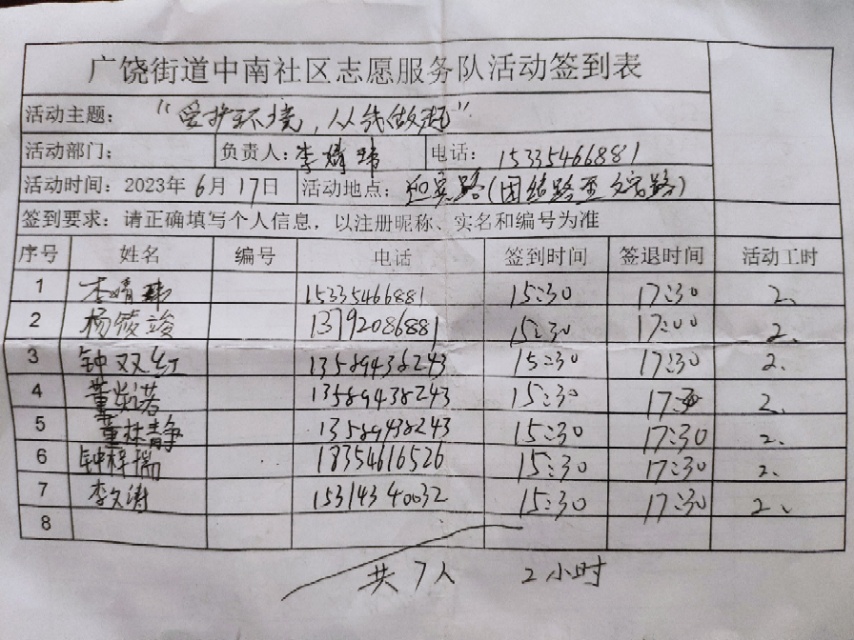 广饶街道中南社区志愿服务队活动签到表
活动主题： “爱护环境，从我做起”
活动部门： 负责人：李婧玮 电话： 15335466881
活动时间：2023年6月17日 活动地点：迎宾路（团结路至路）
签到要求：请正确填写个人信息，以注册昵称、实名和编号为准
序号 姓名 编号 电话 签到时间 签退时间 活动工时
1 李婧玮 15335466881 15:30 17:30 2、
2 杨筱竣 13792086881 15:30 17:00 2、
3 钟双红 13589438243 15:30 17:30 2、
4 董若 13589438243 15:30 17:30 2、
5 董林静 13589438243 15:30 17:30 2、
6 钟梓瑞 18354616526 15:30 17:30 2、
7 李文涛 15314340032 15:30 17:30 2、
8
共7人 2小时